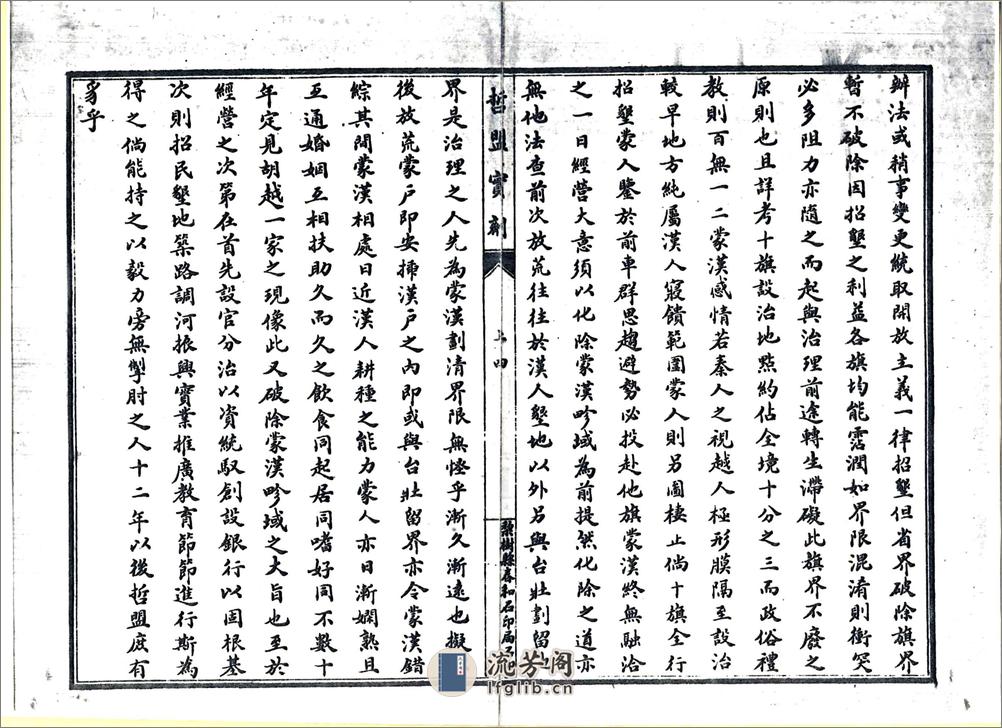 辦法或稍事變更統取開放主義一律招墾但省界破除旗界
暫不破除因招墾之利益各旗均能霑潤如界限混淆則衝突
必多阻力亦隨之而起與治理前途轉生滯礙此旗界不廢之
原則也且詳考十旗設治地點約佔全境十分之三而政俗禮
教則百無一二蒙漢感情若秦人之視越人極形膜隔至設治
較早地方純屬漢人寢饋範圍蒙人則另圖棲止倘十旗全行
招墾蒙人鑒於前車群思趨避勢必投赴他旗蒙漢終無融洽
之一日經營大意須以化除蒙漢畛域為前提然化除之道亦
無他法查前次放荒往往於漢人墾地以外另與台壯劃留
哲盟實劑
上 四
棃樹縣春和石印局石印
界是治理之人先為蒙漢劃清界限無怪乎漸久漸遠也擬
後放荒蒙戶即安插漢戶之內即或與台壯留界亦令蒙漢錯
綜其間蒙漢相處日近漢人耕種之能力蒙人亦日漸嫻熟且
互通婚姻互相扶助久而久之飲食同起居同嗜好同不數十
年定見胡越一家之現像此又破除蒙漢畛域之大旨也至於
經營之次第在首先設官分治以資統馭創設銀行以固根基
次則招民墾地築路調河振興實業推廣教育節節進行斯為
得之倘能持之以毅力旁無掣肘之人十二年以後哲盟庶有
豸乎
流芳阁
lfglib.cn